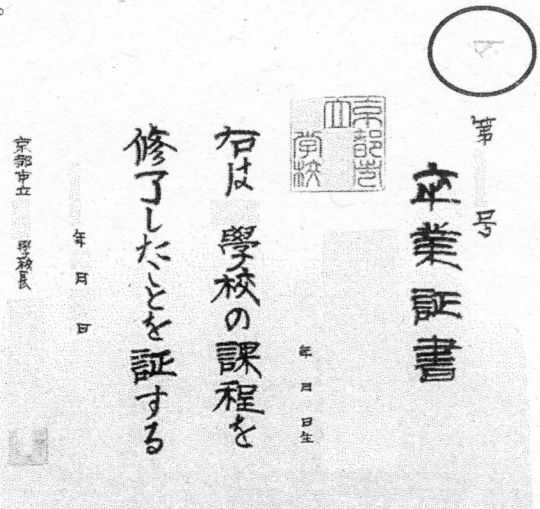 第　号
卒業証書
年　月　日生
京都市立学校
右は　學校の課程を
修了したことを証する
年　月　日
京都市立　學校長